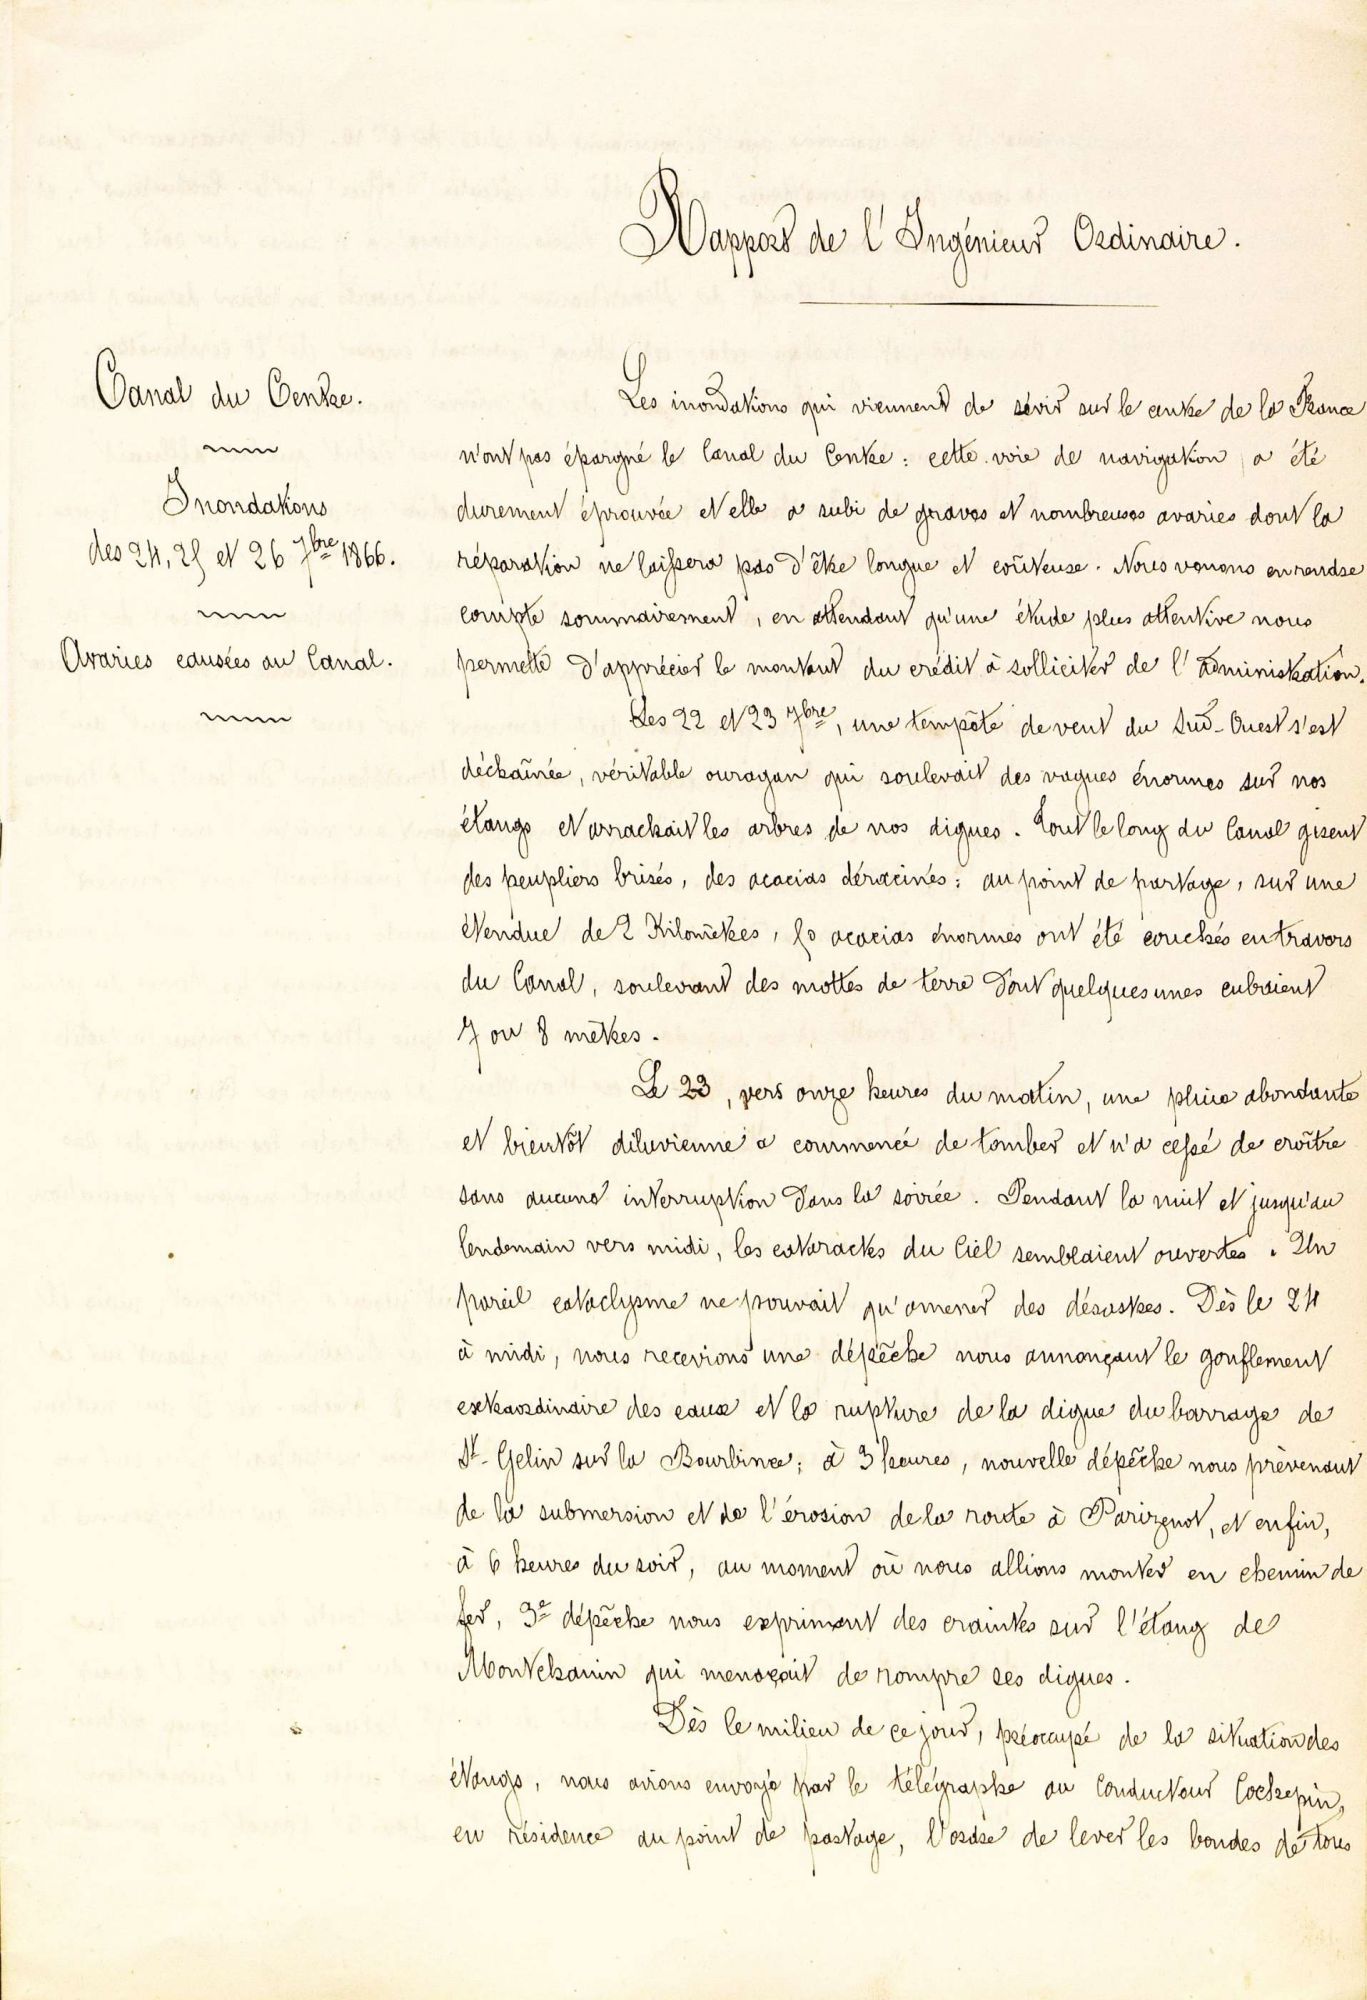 Rapport de l'Ingénieur Ordinaire.
Canal du Centre.
Inondations
des 24, 25 et 26 7bre 1866.
Avaries causées au Canal.
Les inondations qui viennent de sévir sur le centre de la France
n'ont pas épargné le Canal du Centre : cette voie de navigation a été
durement éprouvée et elle a subi de graves et nombreuses avaries dont la
réparation ne laissera pas d'être longue et coûteuse. Nous venons en rendre
compte sommairement, en attendant qu'une étude plus attentive nous
permette d'apprécier le montant du crédit à solliciter de l'administration.
Les 22 et 23 7bre, une tempête de vent du Sud-Ouest s'est
déchaînée, véritable ouragan qui soulevait des vagues énormes sur nos
étangs et arrachait les arbres de nos digues. Tout le long du Canal gisent
des peupliers brisés, des acacias déracinés : au point de partage, sur une
étendue de 2 Kilomètres, 50 acacias énormes ont été couchés en travers
du Canal, soulevant des mottes de terre dont quelques unes cubaient
7 ou 8 mètres.
Le 23, vers onze heures du matin, une pluie abondante
et bientôt diluvienne a commencé de tomber et n'a cessé de croître
sans aucune interruption dans la soirée. Pendant la nuit et jusqu'au
lendemain vers midi, les cataractes du Ciel semblaient ouvertes. Un
pareil cataclysme ne pouvait qu'amener des désastres. Dès le 24
à midi, nous recevions une dépêche nous annonçant le gonflement
extraordinaire des eaux et la rupture de la digue du barrage de
St-Gelin sur la Bourbince ; à 3 heures, nouvelle dépêche nous prévenant
de la submersion et de l'érosion de la route à Parizenot, et enfin,
à 6 heures du soir, au moment où nous allions monter en chemin de
fer, 3e dépêche nous exprimant des craintes sur l'étang de
Montchanin qui menaçait de rompre ses digues.
Dès le milieu de ce jour, préoccupé de la situation des
étangs, nous avions envoyé par le télégraphe au Conducteur Cochepin,
en résidence au point de partage, l'ordre de lever les bondes de tous